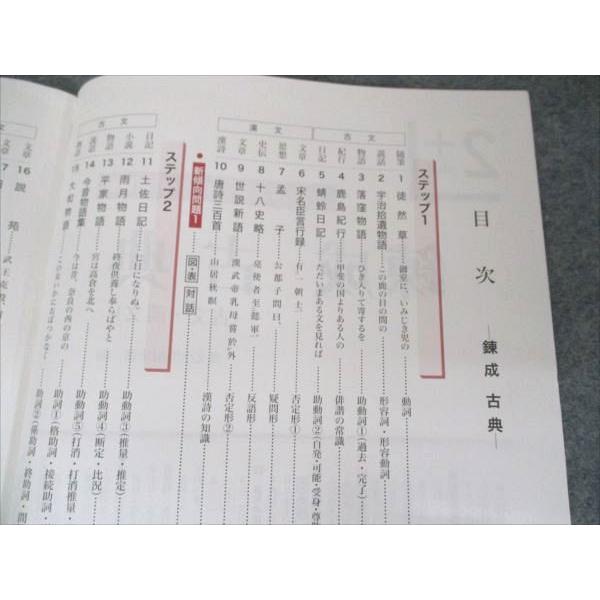 目次 ―錬成 古典―
ステップ1
古文
随筆 1 徒然草 ……御室に、いみじき児の……動詞
説話 2 宇治拾遺物語 ……この鹿の目の間の……形容詞・形容動詞
物語 3 落窪物語 ……ひき入りて寄するを……助動詞①(過去・完了)
紀行 4 鹿島紀行 ……甲斐の国よりある人の……俳諧の常識
日記 5 蜻蛉日記 ……ただいまある文を見れば……助動詞②(自発・可能・受身・尊敬
漢文
文章 6 宋名臣言行録 ……有一朝士……否定形①
思想 7 孟子 ……公都子問曰、……疑問形
史伝 8 十八史略 ……亮使者至懿軍……反語形
文章 9 世説新語 ……漢武帝乳母嘗於外……否定形②
漢詩 10 唐詩三百首 ……山居秋暝……漢詩の知識
●新傾向問題1 ……図・表 対話
ステップ2
古文
日記 11 土佐日記 ……七日になりぬ。……助動詞③(推量・推定)
小説 12 雨月物語 ……終夜供養し奉らばやと……助動詞④(断定・比況)
物語 13 平家物語 ……宮は高倉を北へ……助動詞⑤(打消・打消推量・
説話 14 今昔物語集 ……今は昔、奈良の西の京の……助詞①(格助詞・接続助詞・
物語 15 大和物語 ……助詞②(係助詞・終助詞・間
文章 16 説苑 ……武王克殷、